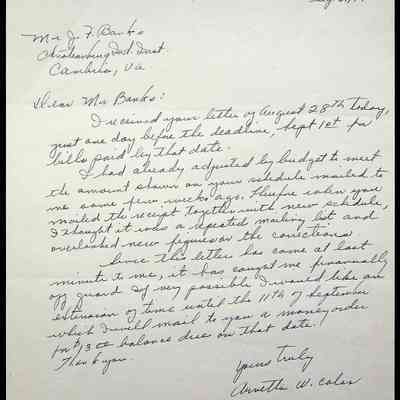 Mr J. F. Banks
Christiansburg Ind. Inst.
Cambria, Va.
Dear Mr Banks:
I received your letter of August 28th today,
just one day before the deadline, Sept 1st for
bills paid by that date.
I had already adjusted by budget to meet
the amount shown on your schedule mailed to
me some few weeks ago. Therefore when you
mailed the receipt together with new schedule,
I thought it was a repeated mailing list and
overlooked new figures or the corrections
Since this letter has come at last
minute to me, it has caught me financially
off guard. If very possible I would like an
extension of time until the 11th of September
which I will mail to you a money order
for balance due on that date.
Thank you.
Yours truly
W.